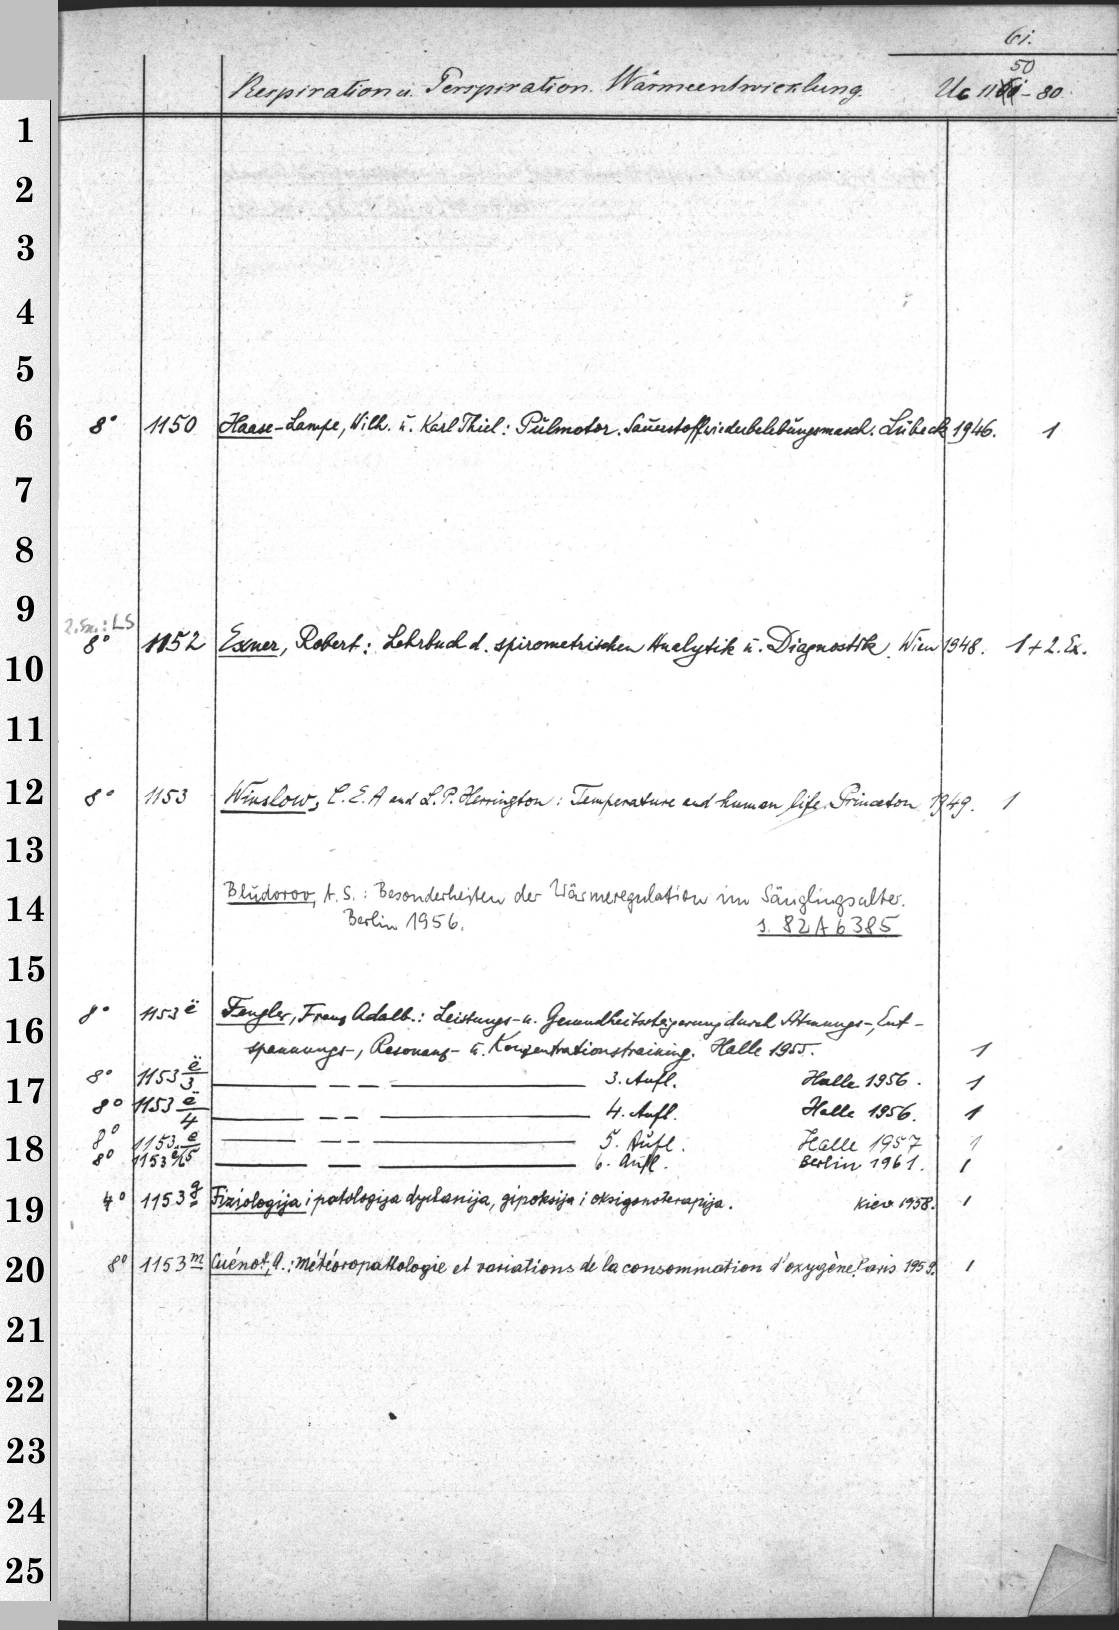 61.
50
Respiration u. Perspiration. Wärmeentwicklung. Uc 11 - 80
1
2
3
4
5
6 8° 1150 Haase-Lampe, Wilh. ŭ. Karl Thiel: Pŭlmotor. Saŭerstoffwiederbelebŭngsmasch. Lŭbeck 1946. 1
7
8
9 2. Ex.: LS
8° 1152 Exner, Robert: Lehrbuch d. spirometrischen Analytik ŭ. Diagnostik. Wien 1948. 1 + 2. Ex.
10
11
12 8° 1153 Winslow, C. E. A and L. P. Herrington: Temperature and human life. Princeton 1949. 1
13
14 Blŭdorov, A. S.: Besonderheiten der Wärmeregulation im Säuglingsalter.
Berlin 1956. s. 82 A 6385
15
8° 1153 ë Fengler, Franz Adalb.: Leistungs- u. Gesundheitssteigerung durch Atmungs-, Ent-
16 spannungs-, Resonanz- u. Konzentrationstraining. Halle 1955. 1
8° 1153 ë/3 — — — 3. Aufl. Halle 1956. 1
17
8° 1153 ë/4 — — — 4. Aufl. Halle 1956. 1
8° 1153 e — — — 5. Aŭfl. Halle 1957 1
18
8° 1153 — — — 6. Aufl. Berlin 1961. 1
19 4° 1153 g Fiziologija i patologija dychanija, gipoksija i oksigenoterapija. Kiev 1958. 1
20 8° 1153 m Cuénot, A.: Météoropathologie et variations de la consommation d'oxygène. Paris 1959. 1
21
22
23
24
25